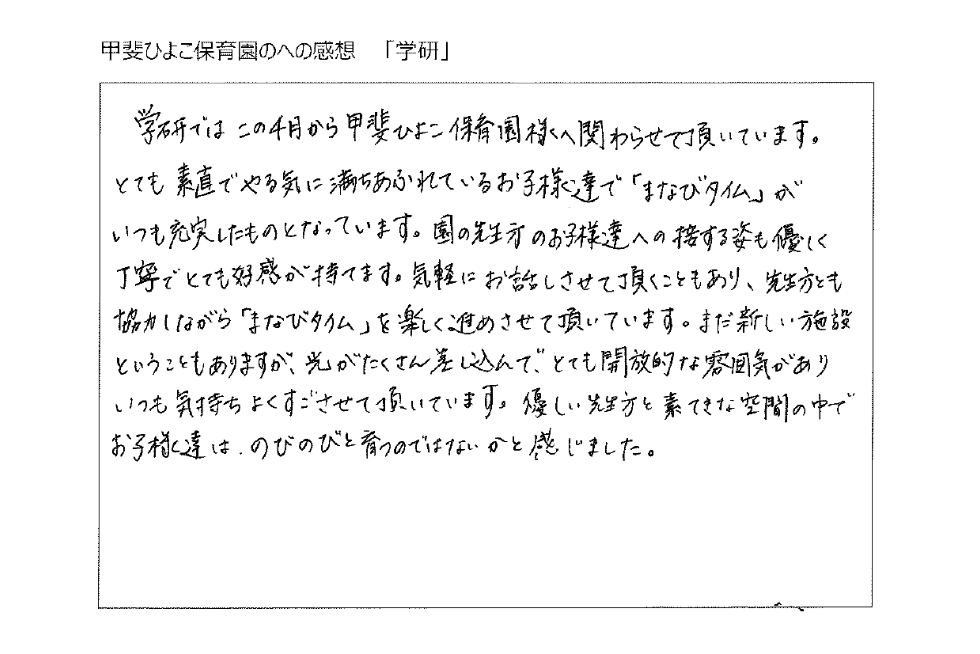 甲斐ひよこ保育園のへの感想　「学研」
学研ではこの4月から甲斐ひよこ保育園様へ関わらせて頂いています。
とても素直でやる気に満ちあふれているお子様達で「まなびタイム」が
いつも充実したものとなっています。園の先生方のお子様達への接する姿も優しく
丁寧でとても好感が持てます。気軽にお話しさせて頂くこともあり、先生方とも
協力しながら「まなびタイム」を楽しく進めさせて頂いています。まだ新しい施設
ということもありますが、光がたくさん差し込んで、とても開放的な雰囲気があり
いつも気持ちよくすごさせて頂いています。優しい先生方と素てきな空間の中で
お子様達は、のびのびと育つのではないかと感じました。